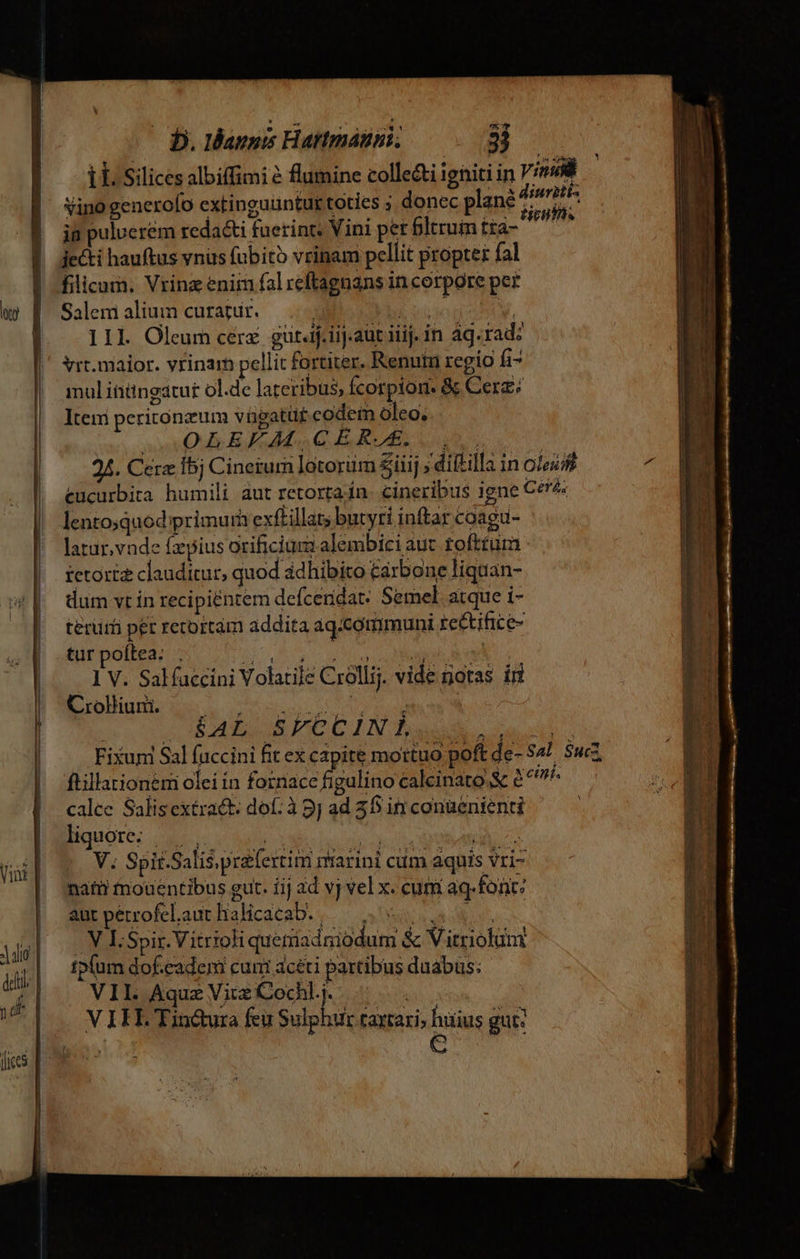 D. Iôannis Hartmanni. 33
II. Silices albiſſimi è flumine collecti igniti in Vinum
vino generoſo extinguuntur toties ; donec planè diureti-
in puluerem redacti fuerint. Vini per filtrum tra- cum.
jecti hauſtus vnus ſubitò vrinam pellit propter ſal
ſilicum. Vrinæ enim ſal reſtagnans in corpore per
Salem alium curatur.
III. Oleum ceræ gut.ij.iij.aut iiij. in aq.rad.
vrt.maior. vrinam pellit fortiter. Renum regio ſi-
mul inungatur ol.de lateribus, ſcorpion. & Ceræ.
Item peritonæum vngatur eodem oleo.
OLEVM CERÆ.
℞. Ceræ ℔j Cinerum lotorum ℥iiij ; diſtilla in oleum
cucurbita humili aut retorta in cineribus igne Ceræ.
lento, quod primum exſtillat, butyri inſtar coagu-
latur, vnde ſæpius orificium alembici aut roſtrum
retortæ clauditur, quod adhibito carbone liquan-
dum vt in recipientem deſcendat. Semel atque i-
terum per retortam addita aq.communi rectifice-
tur poſtea.
IV. Sal ſuccini Volatile Crollij. vide notas in
Crollium.
SAL SVCCINI.
Fixum Sal ſuccini fit ex capite mortuo poſt de- Sal Suc-
ſtillationem olei in fornace figulino calcinato & è cini.
calce Salis extract. doſ. à ℈j ad ʒß in conuenienti
liquore.
V. Spir.Salis, præſertim marini cum aquis vri-
nam mouentibus gut. iij ad vj vel x. cum aq.font.
aut petroſel. aut halicacab.
VI. Spir. Vitrioli quemadmodum & Vitriolum
ipſum doſ.eadem cum aceti partibus duabus.
VII. Aquæ Vitæ Cochl.j.
VIII. Tinctura ſeu Sulphur tartari, huius gut.
C